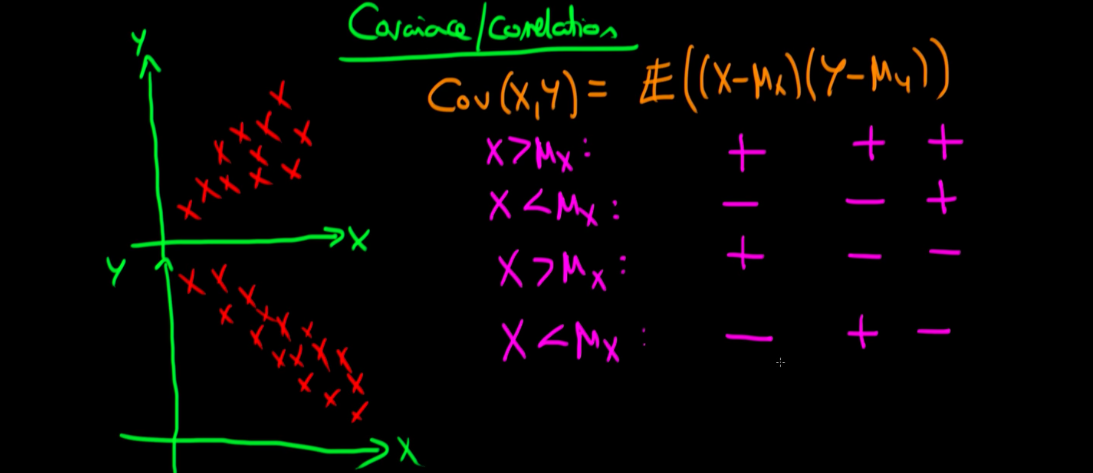 Covariance/Correlation
Cov(X,Y) = E((X-μx)(Y-μy))
X>μx: + + +
X<μx: - - +
X>μx: + - -
X<μx: - + -
Y
X
Y
X